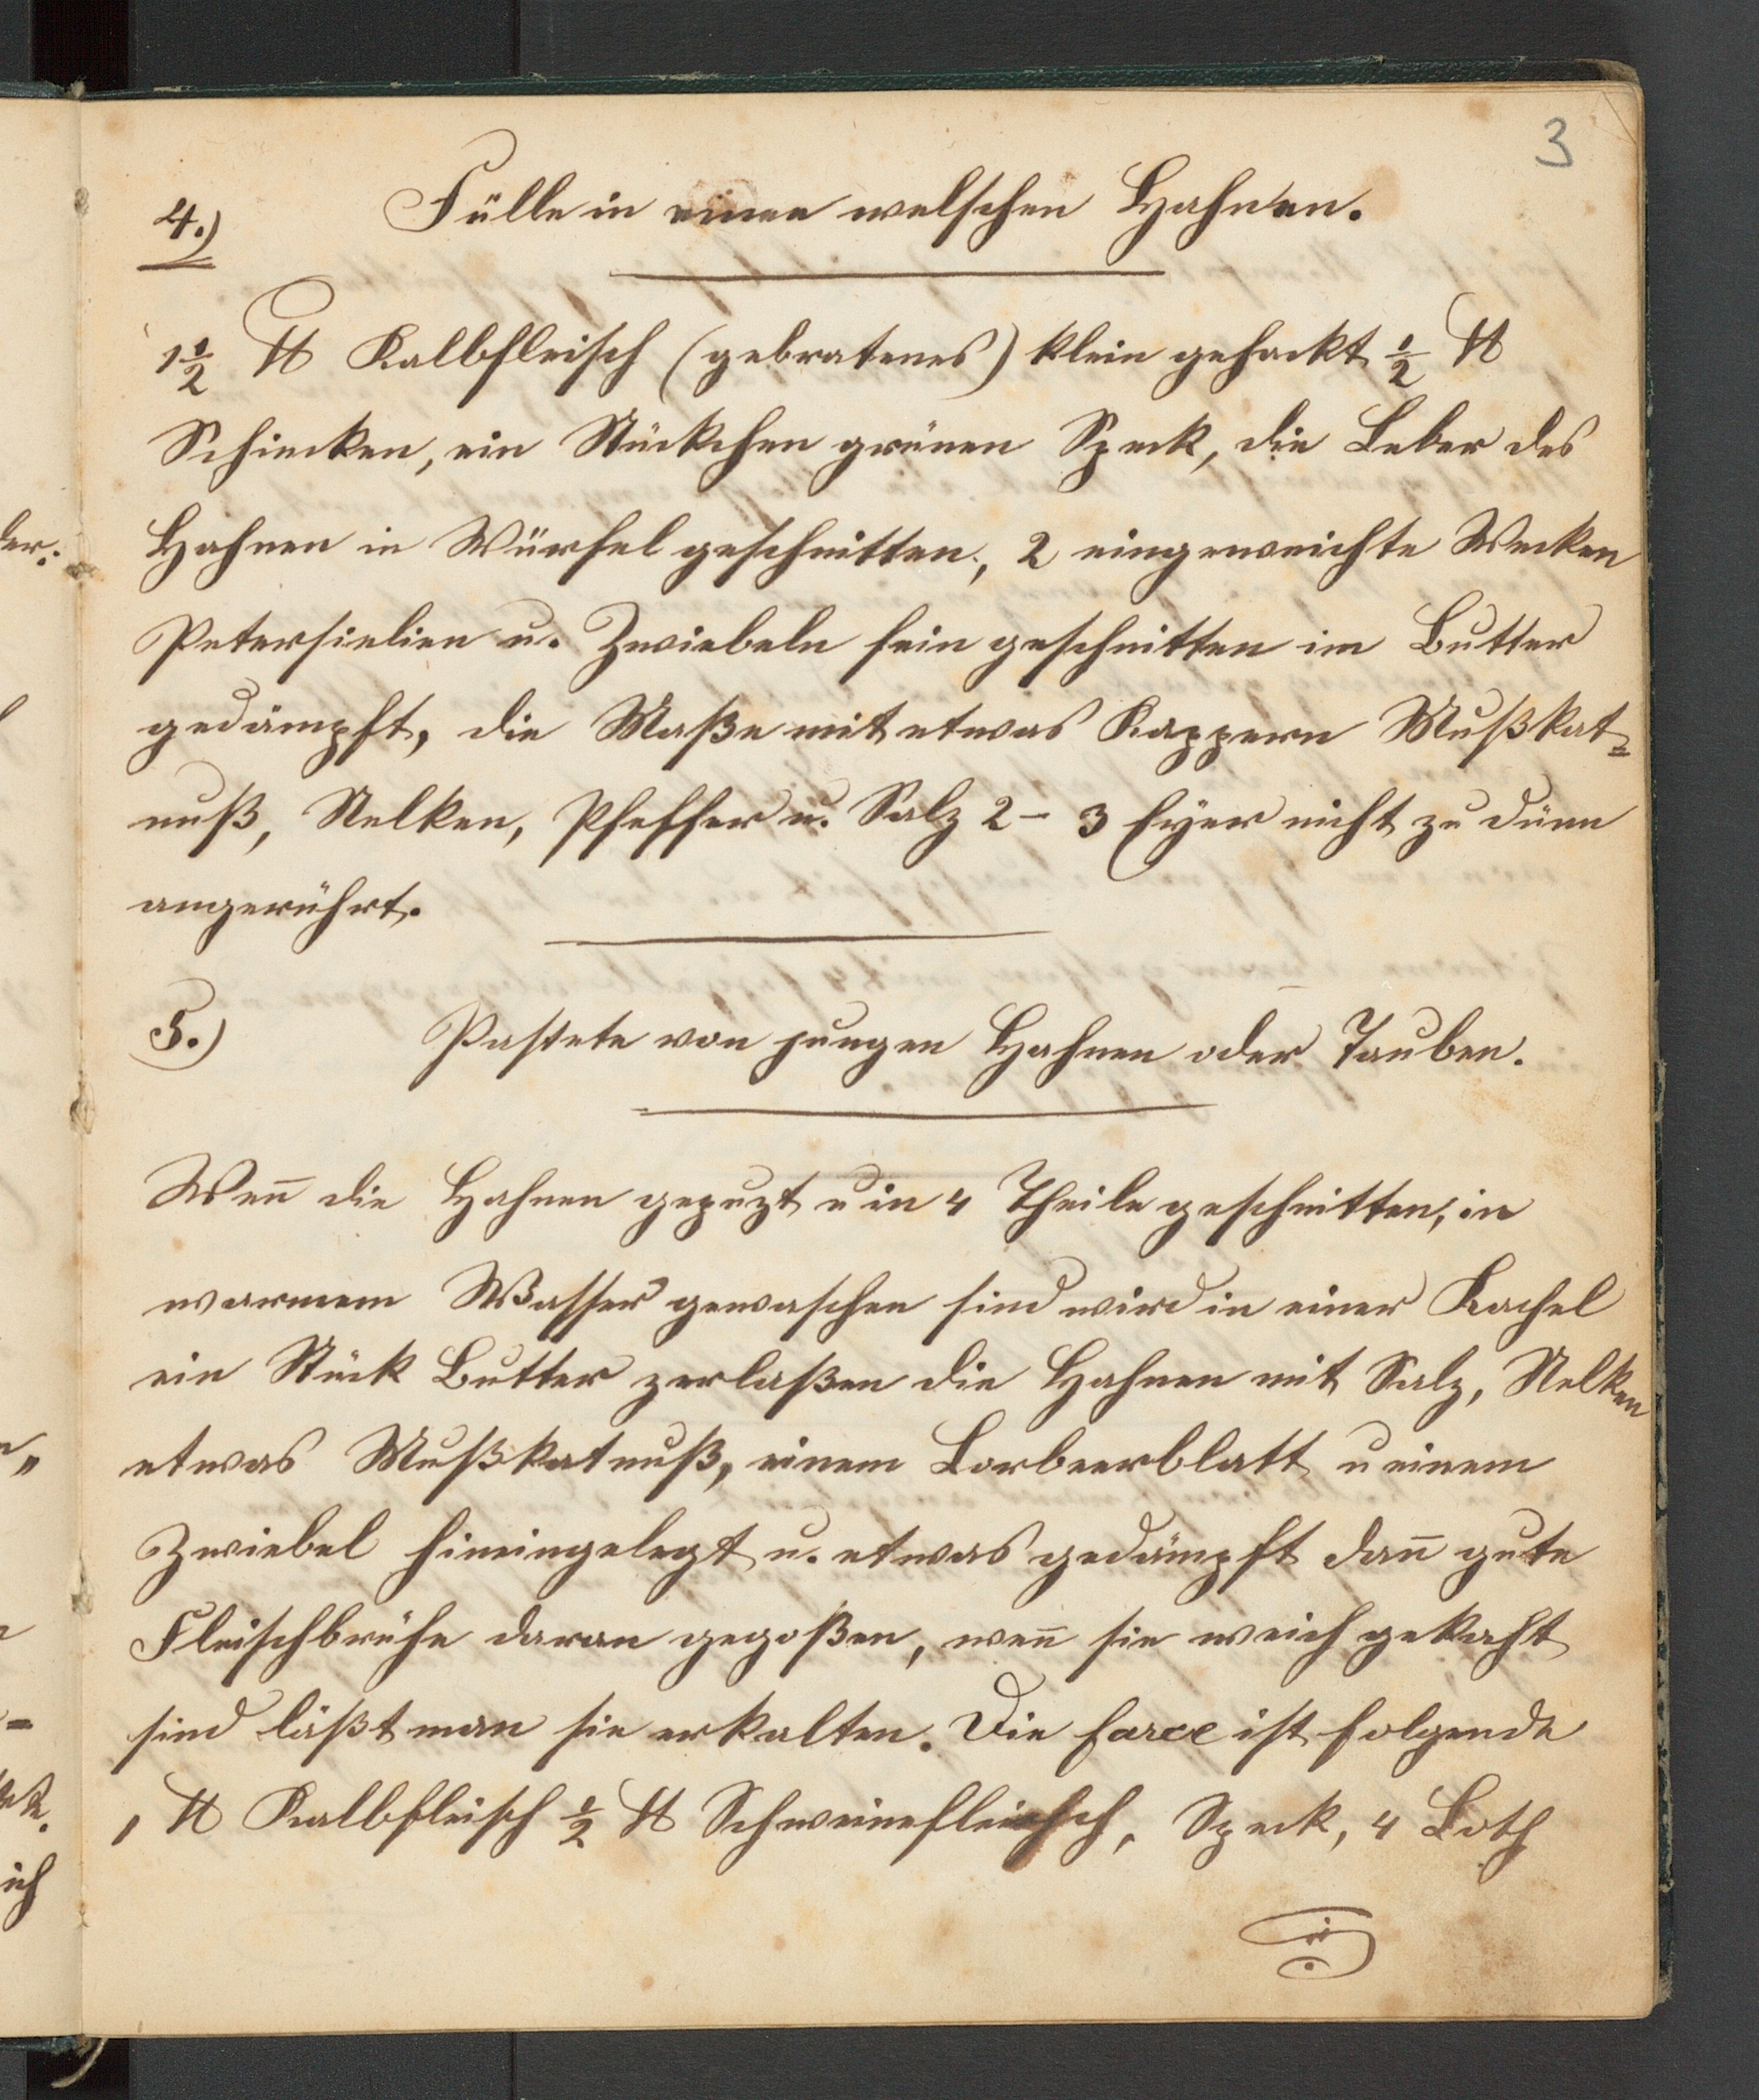 3
4.) Fülle in einen welschen Hahnen.
1 1/2 ℔ Kalbfleisch (gebratenes) klein gehackt 1/2 ℔
Schincken, ein Stückchen grünen Speck, die Leber des
Hahnen in Würfel geschnitten, 2 eingeweichte Wecken
Petersielien u. Zwiebeln fein geschnitten im Butter
gedämpft, die Maße mit etwas Kappern Mußkat=
nuß, Nelken, Pfeffer u. Salz 2 - 3 Eyer nicht zu dünn
angerührt.
5.) Pastete von jungen Hahnen oder Tauben.
Wen̄ die Hahnen gepuzt u in 4 Theile geschnitten, in
warmem Wasser gewaschen sind wird in einer Kachel
ein Stück Butter zerlaßen die Hahnen mit Salz, Nelken
etwas Mußkatnuß, einem Lorbeerblatt u einem
Zwiebel hineingelegt u. etwas gedämpft dan̄ gute
Fleischbrühe daran gegoßen, wen̄ sie weich gekocht
sind läßt man sie erkalten. Die farce ist folgende
1 ℔ Kalbfleisch 1/2 ℔ Schweinefleisch, Speck, 4 Loth